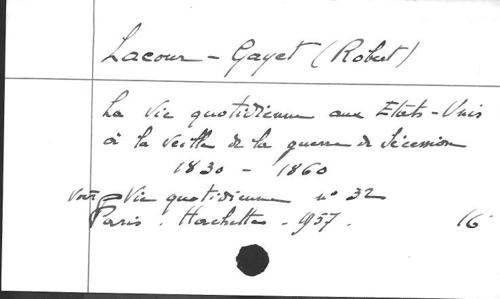 Lacour-Gayet (Robert)
La vie quotidienne aux Etats-Unis
à la veille de la guerre de Sécession
1830 - 1860
voir Vie quotidienne n° 32
Paris. Hachette - 957. 16°